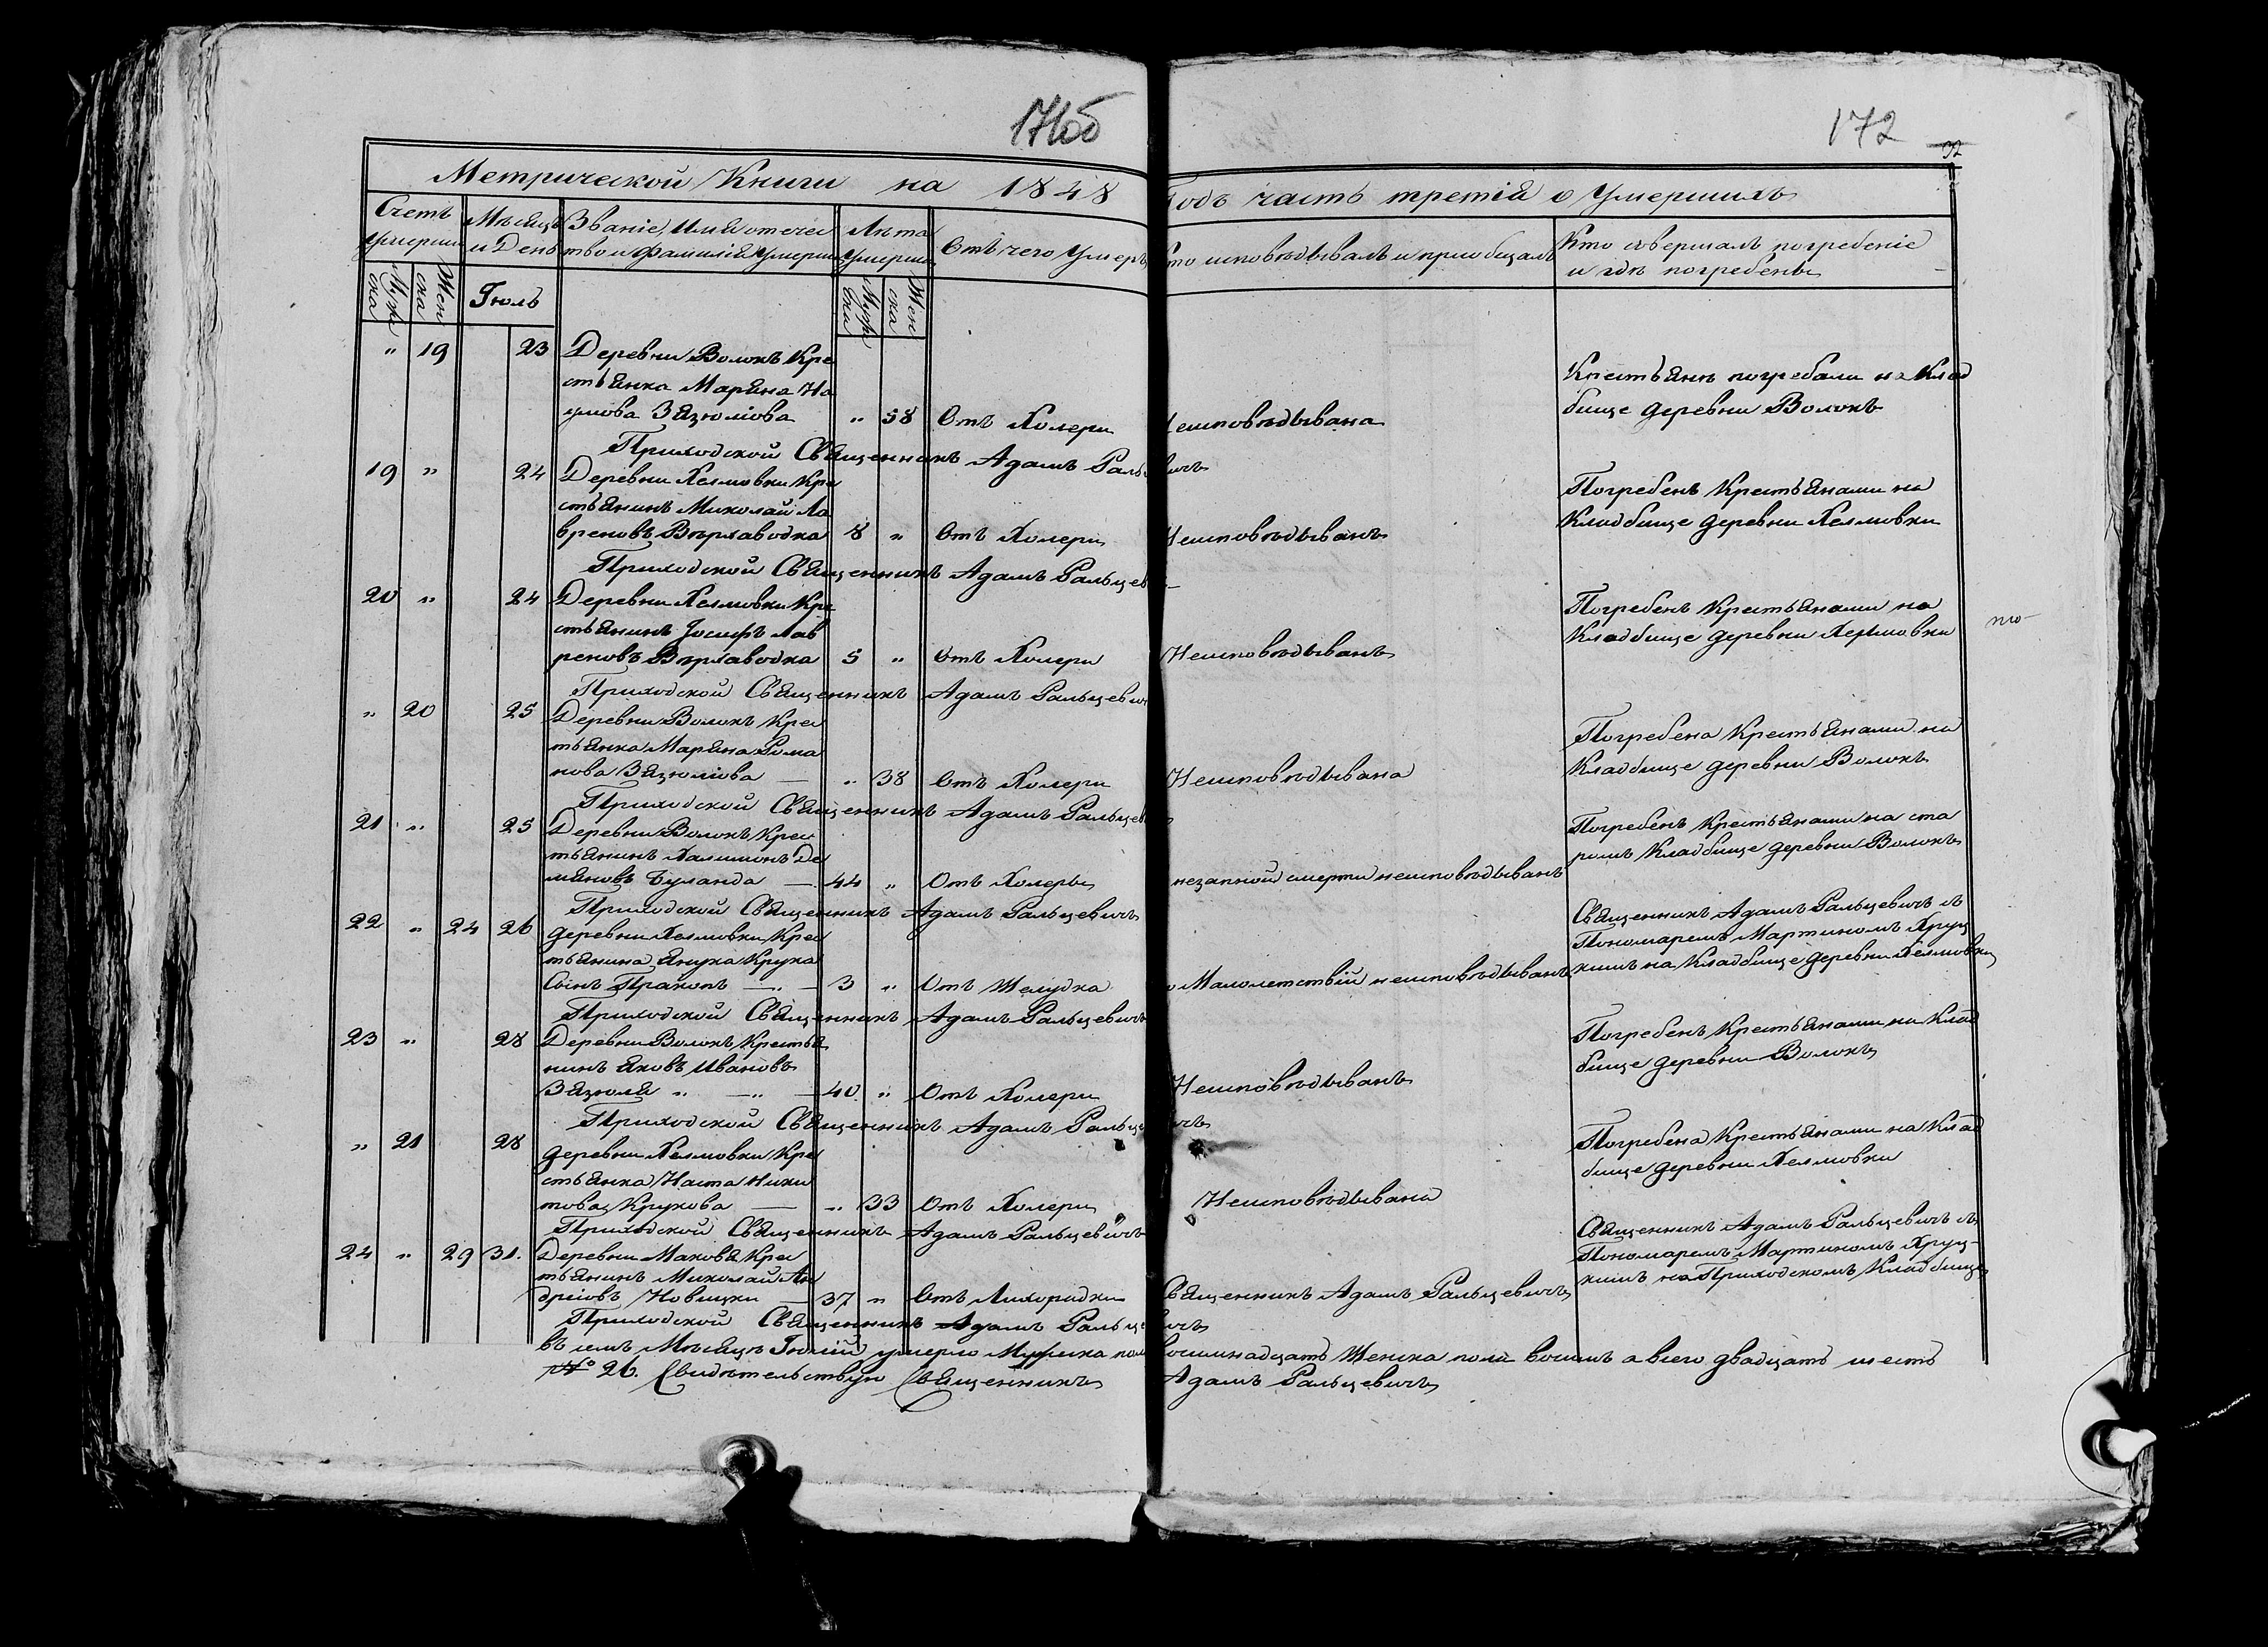 171об
172
32
Метрической Книги на 1848 Годъ часть третія о Умершихъ
Счетъ Умерши
Мѣсяцъ и День
Званіе, Имя отечес
тво и фамилія Умерши
Лѣта Умерши
Отъ чего Умеръ
Кто исповѣдывалъ и пріобщалъ
Кто совершалъ погребеніе
и гдѣ погребены
Муж
ска
Жен
ска
Іюль
Муж
ска
Жен
ска
" 19 23 Деревни Волокъ Кре
стьянка Марьяна На
умова Зязюліова " 58 Отъ Холери Неисповѣдывана
Крестьяне погребали на Клад
бище деревни Волокъ
Приходской Священникъ Адамъ Ральцевичъ
19 " 24 Деревни Хелмовки Кре
стьянинъ Миколай Ла
вреновъ 8 " Отъ Холери Неисповѣдыванъ
Погребенъ Крестьянами на
Кладбище деревни Хелмовки
Приходской Священникъ Адамъ Ральцев
20 " 24 Деревни Хелмовки Кре
стьянинъ Іосифъ Лав
реновъ 5 " Отъ Холери Неисповѣдыванъ
Погребенъ Крестьянами на
Кладбище деревни Хелмовки
Приходской Священникъ Адамъ Ральцевич
" 20 25 Деревни Волокъ Крес
тьянка Марьяна Рома
нова Зязюліова — " 38 Отъ Холери Неисповѣдывана
Погребена Крестьянами на
Кладбище деревни Волокъ
Приходской Священникъ Адамъ Ральцев
21 " 25 Деревни Волокъ Крес
тьянинъ Халимонъ Де
мяновъ Буланда — 44 " Отъ Холеры незапной смерти неисповѣдыванъ
Погребенъ Крестьянами на ста
ромъ Кладбище деревни Волокъ
Приходской Священникъ Адамъ Ральцевичъ
22 " 24 26 деревни Хелмовки Крес
тьянина Янука Крука
Сынъ Пракопъ — " — 3 " Отъ Желудка по Малолетствій неисповѣдыванъ
Священникъ Адамъ Ральцевичъ съ
Пономаремъ Мартиномъ Хруц
кимъ на Кладбище деревни Хелмовки
Приходской Священникъ Адамъ Ральцевичъ
23 " 28 Деревни Волокъ Крестья
нинъ Яковъ Ивановъ
Зязюля " — " — 40 " Отъ Холери Неисповѣдыванъ
Погребенъ Крестьянами на Клад
бище деревни Волокъ
Приходской Священникъ Адамъ Ральцевичъ
" 21 28 деревни Хелмовки Кре
стьянка Наста Ники
това Крукова — " 33 Отъ Холери Неисповѣдывана
Погребена Крестьянами на Клад
бище деревни Хелмовки
Приходской Священникъ Адамъ Ральцевичъ
24 " 29 31. Деревни Маковя Крес
тьянинъ Миколай Ан
дріовъ Новицки — 37 " Отъ Лихорадки Священникъ Адамъ Ральцевичъ
Священникъ Адамъ Ральцевичъ съ
Пономаремъ Мартиномъ Хруц-
кимъ на Приходскомъ Кладбище
Приходской Священникъ Адамъ Ральцевичъ
въ семъ Мѣсяцѣ Іюлій умерло Мужеска пола восимнадцать Женска пола восимъ а всего двадцать шесть
№ 26. Свидѣтельствую Священникъ Адамъ Ральцевичъ